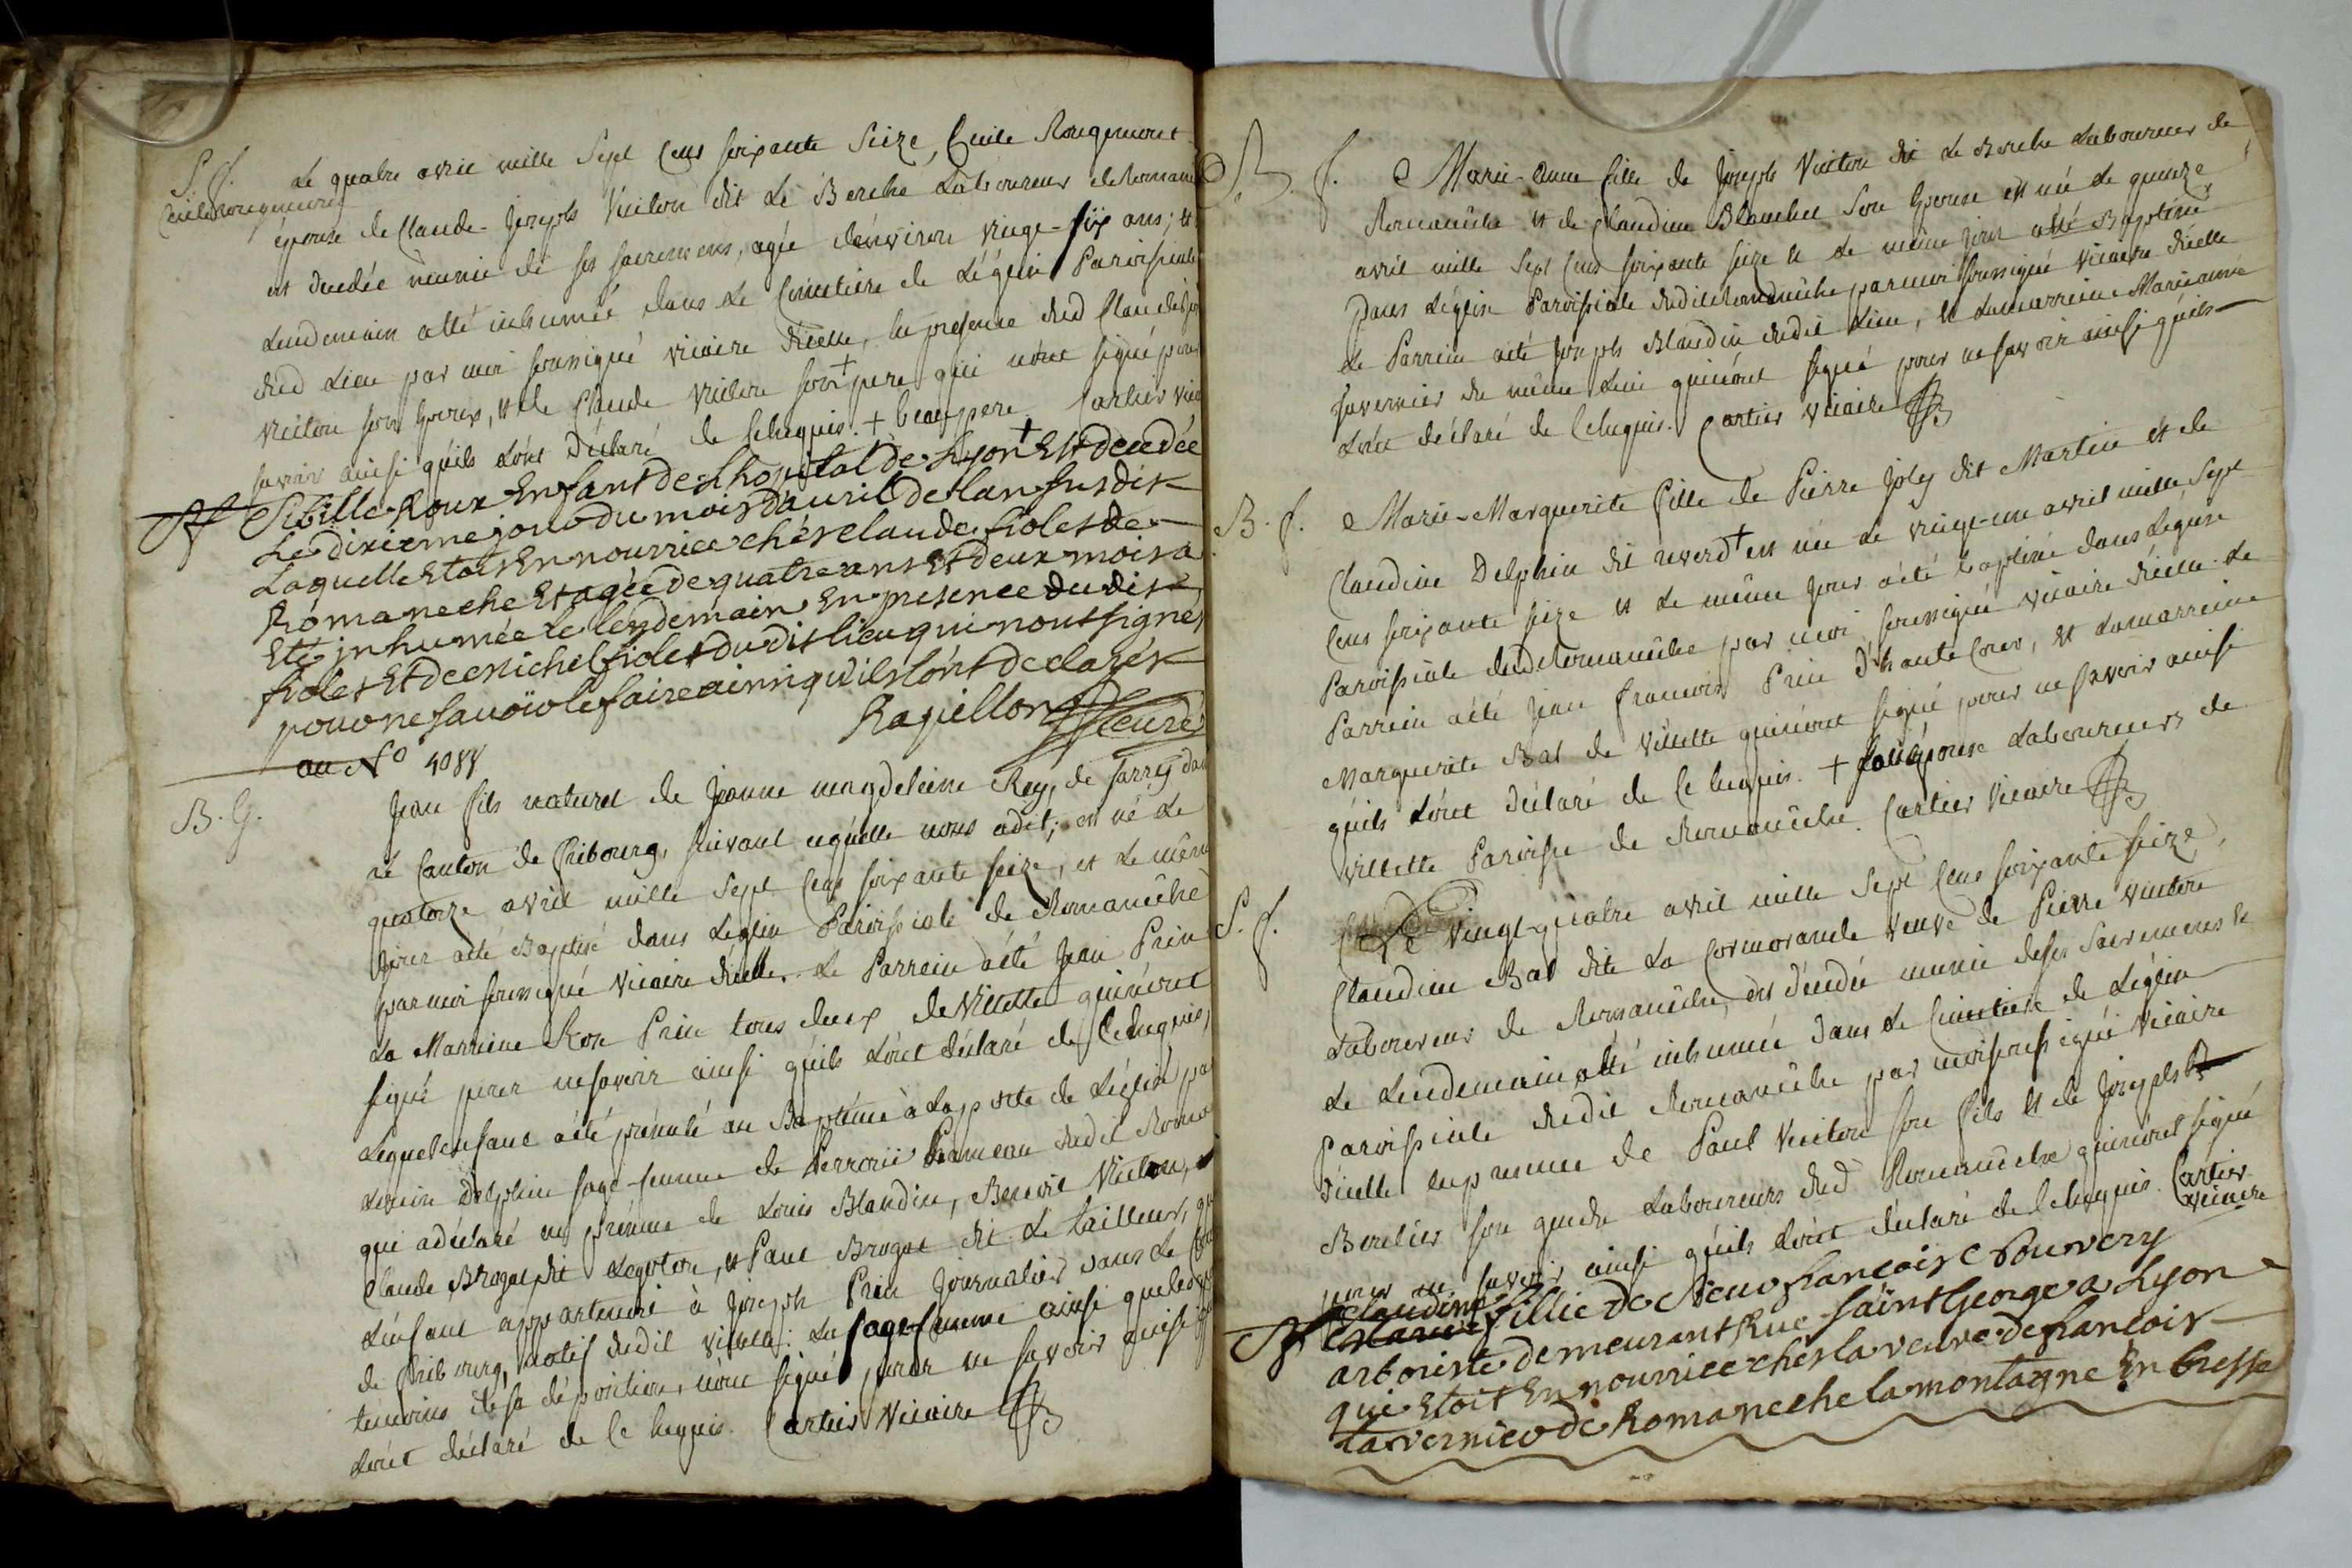 S. f. Le quatre avril mille Sept Cens soixante Seize, Cecile Rougemont
Cecile Rougemont
épouse de Claude-Joseph Vuiton dit Le Berche Laboureur de Romane
est décédée munie de ses sacremens, agée d'environ vingt-six ans; et
Lendemain atté inhumée dans Le Cimetiere de L'église Paroissiale
dud Lieu par moi soussigné vicaire d'icelle, en presence dud Claude jos
Vuiton son Epoux, et de Claude Vuiton son + pere qui n'ont signé pour
savoir ainsi qu'ils L'ont Déclaré de ce requis. + beaupere Cartier vica
Sf Sibille Roux Enfant de L'hopital de Lyon + Est decedée
Le dixieme jour du mois d'avril de Lan susdit
Laquelle Etoit En nourrice chés claude fiolet de
Romaneche Et agée de quatre ans Et deux mois a
Eté jnhumée Le lendemain En presence dudit
fiolet Et de michel fiolet du dit lieu qui nont signés
pour ne savoir le faire ainsi qu'ils lont declarés
Rapillon curé
au No 4088
B. G. Jean fils naturel de Jeanne magdeleine Rey, de sarrey dan
Le Canton de fribourg, suivant cequelle nous adit; est né Le
quatorze avril mille Sept Cens soixante seize, et Le même
jour aété Baptisé dans L'église Paroissiale de Romanêche
par moi soussigné vicaire d'icelle. Le Parrain aété Jean Prin
La Marreine Rose Prin tous deux de Villette qui n'ont
signé pour ne savoir ainsi qu'ils L'ont déclaré de Ce requis,
Lequel enfant aété présenté au Baptême à La porte de L'église par
Delphin sage-femme de Perraui hameau dudit Roma
qui adéclaré en présence de Louis Blandin, Benoit Vuiton, et
Claude Brogat dit Legoton, et Paul Brogat dit Le tailleur, que
L'enfant appartenoit à Joseph Prin Journalier dans Le Can
de fribourg, natif dudit Villette: La sage-femme ainsi que les
temoins de sa déposition, n'ont signé pour ne savoir ainsi q
L'ont déclaré de Ce requis. Cartier Vicaire
B. f. Marie-Anne fille de Joseph Vuiton dit Le Berche Laboureur de
Romanêche et de Claudine Blanchet Son Epouse est née Le quinze
avril mille Sept Cens soixante seize et Le même jour atté Baptisée
dans L'église Paroissiale dudit Romanêche par moi soussigné vicaire d'icelle
Le Parrain aété Joseph Blandin dudit Lieu, et La marreine Marie anne
Favernier du même Lieu qui n'ont signé pour ne savoir ainsi qu'ils
L'ont déclaré de Ce requis. Cartier vicaire
B. f. Marie-Marguerite fille de Pierre Joly dit Martin et de
Claudine Delphin dit reverd + est née Le vingt-un avril mille Sept
Cens soixante seize et Le même jour aété baptisée dans L'église
Paroissiale dud Romanêche par moi soussigné vicaire d'icelle. Le
Parrain aété Jean francois Prin d'haute Cour, et La marreine
Marguerite Bal de Villette qui n'ont signé pour ne savoir ainsi
qu'ils L'ont Déclaré de Ce requis. + son épouse Laboureurs de
Villette Paroisse de Romanêche. Cartier Vicaire
S. f. Le vingt-quatre avril mille Sept Cens soixante seize,
Claudine Bal dite La Cormorande veuve de Pierre Vuiton
Laboureur de Romanêche, est décédée munie de ses Sacremens et
Le Lendemain atté inhumée dans Le Cimetiere de L'église
Paroissiale dudit Romanêche par moi soussigné vicaire
d'icelle en presence de Paul Vuiton son fils et de Joseph
Berelier son gendre Laboureurs dud Romanêche qui n'ont signé
pour ne savoir ainsi qu'ils L'ont déclaré de Ce requis. Cartier
vicaire
claudine
Sf Marie fillie de Sieur francoise Pouvery
arboriste demeurant Rue saint George a Lyon
qui Etoit En nourrice chés la veuve de francois
Lavernier de Romaneche la montagne En bresse